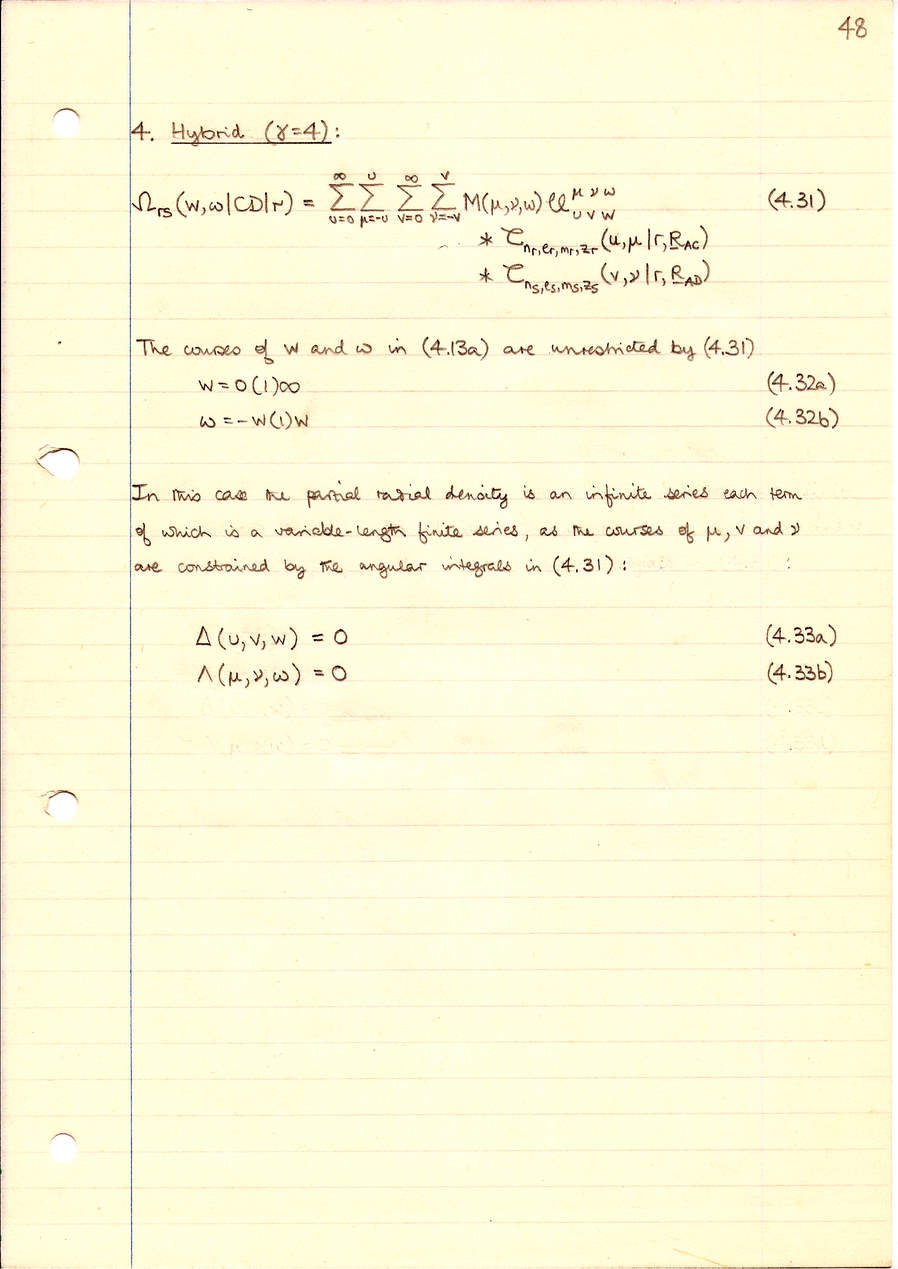 48
4. Hybrid (γ=4):
Ω_rs(w,ω|CD|r) = ∑_{u=0}^{∞} ∑_{μ=-u}^{u} ∑_{v=0}^{∞} ∑_{ν=-v}^{v} M(μ,ν,ω) 𝒰^{μ ν ω}_{u v w} (4.31)
* τ_{n_r,l_r,m_r,z_r}(u,μ|r,R_AC)
* τ_{n_s,l_s,m_s,z_s}(v,ν|r,R_AD)
The courses of w and ω in (4.13a) are unrestricted by (4.31)
w = 0(1)∞ (4.32a)
ω = -w(1)w (4.32b)
In this case the partial radial density is an infinite series each term
of which is a variable-length finite series, as the courses of μ, v and ν
are constrained by the angular integrals in (4.31):
Δ(u,v,w) = 0 (4.33a)
Λ(μ,ν,ω) = 0 (4.33b)